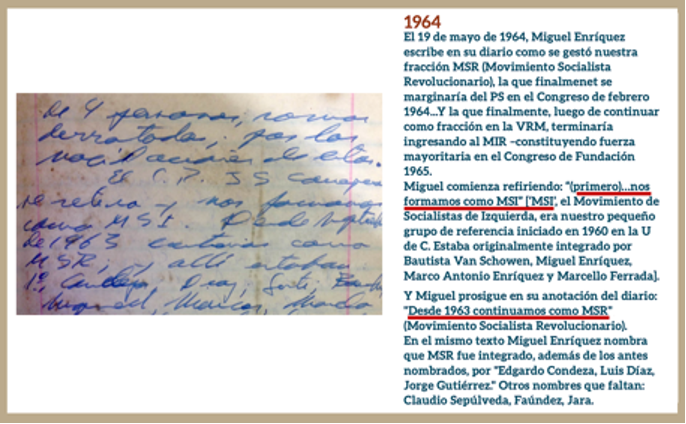 de 4 personas, somos
derrotados, por las
vacilaciones de estos.
El C.R. JS
se retira y nos formamos
como MSI. Desde
de 1963 como
MSR, y allí estaban
Condeza, Diaz,
Miguel, Marcos, Marcelo
1964
El 19 de mayo de 1964, Miguel Enríquez
escribe en su diario como se gestó nuestra
fracción MSR (Movimiento Socialista
Revolucionario), la que finalmenet se
marginaría del PS en el Congreso de febrero
1964...Y la que finalmente, luego de continuar
como fracción en la VRM, terminaría
ingresando al MIR –constituyendo fuerza
mayoritaria en el Congreso de Fundación
1965.
Miguel comienza refiriendo: "(primero)...nos
formamos como MSI" ['MSI', el Movimiento de
Socialistas de Izquierda, era nuestro pequeño
grupo de referencia iniciado en 1960 en la U
de C. Estaba originalmente integrado por
Bautista Van Schowen, Miguel Enríquez,
Marco Antonio Enríquez y Marcello Ferrada].
Y Miguel prosigue en su anotación del diario:
"Desde 1963 continuamos como MSR"
(Movimiento Socialista Revolucionario).
En el mismo texto Miguel Enríquez nombra
que MSR fue integrado, además de los antes
nombrados, por "Edgardo Condeza, Luis Díaz,
Jorge Gutiérrez." Otros nombres que faltan:
Claudio Sepúlveda, Faúndez, Jara.